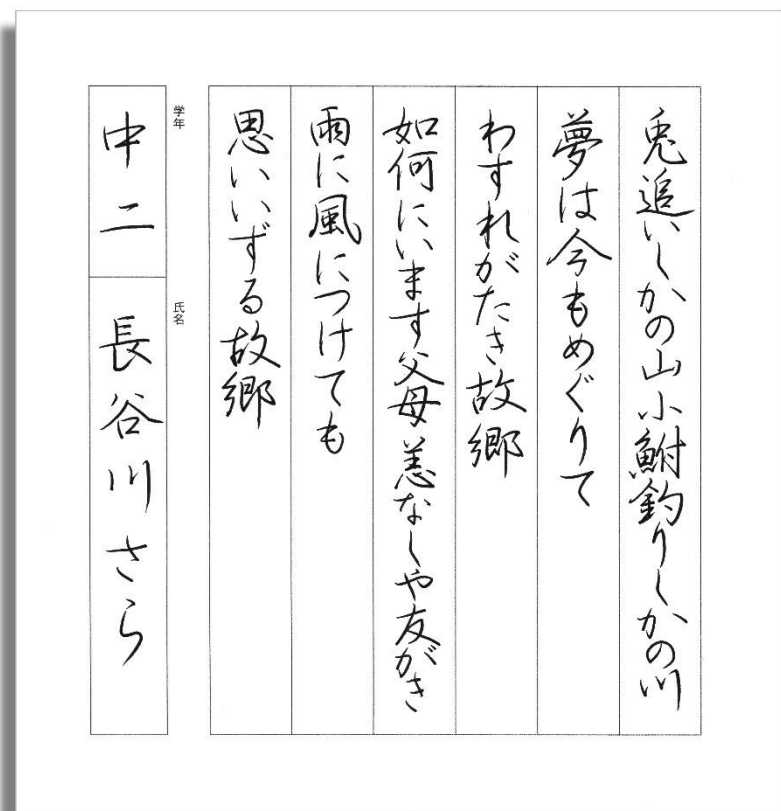 兎追いしかの山小鮒釣りしかの川
夢は今もめぐりて
わすれがたき故郷
如何にいます父母恙なしや友がき
雨に風につけても
思いいずる故郷
学年
中二
氏名
長谷川さら